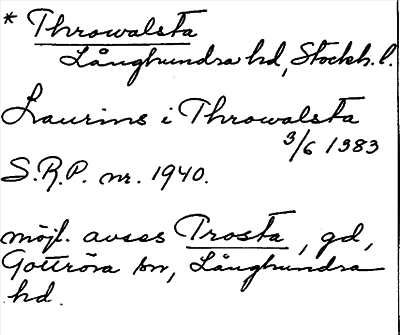 * Throwalsta
Långhundra hd, Stockh. l.
Laurins i Throwalsta
3/6 1383
S.R.P. nr. 1940.
möjl. avses Trosta, gd,
Gottröra sn, Långhundra
hd.